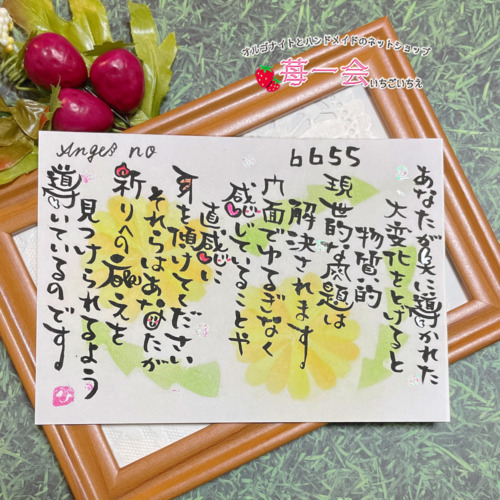 オルゴナイトとハンドメイドのネットショップ
苺一会
いちごいちえ
Angel no
6655
あなたが天に導かれた
大変化をとげると
物質的
現世的な問題は
解決されます
内面でゆるぎなく
感じていることや
直感に
耳を傾けてください
それらはあなたが
祈りへの応えを
見つけられるよう
導いているのです